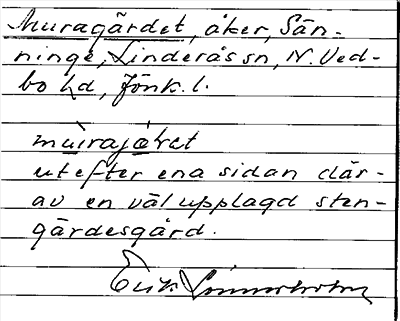 Muragärdet, åker, Sän-
ninge, Linderås sn, N. Ved-
bo hd, Jönk. l.
mùrajætet
utefter ena sidan där-
av en väl upplagd sten-
gärdesgård.
Erik